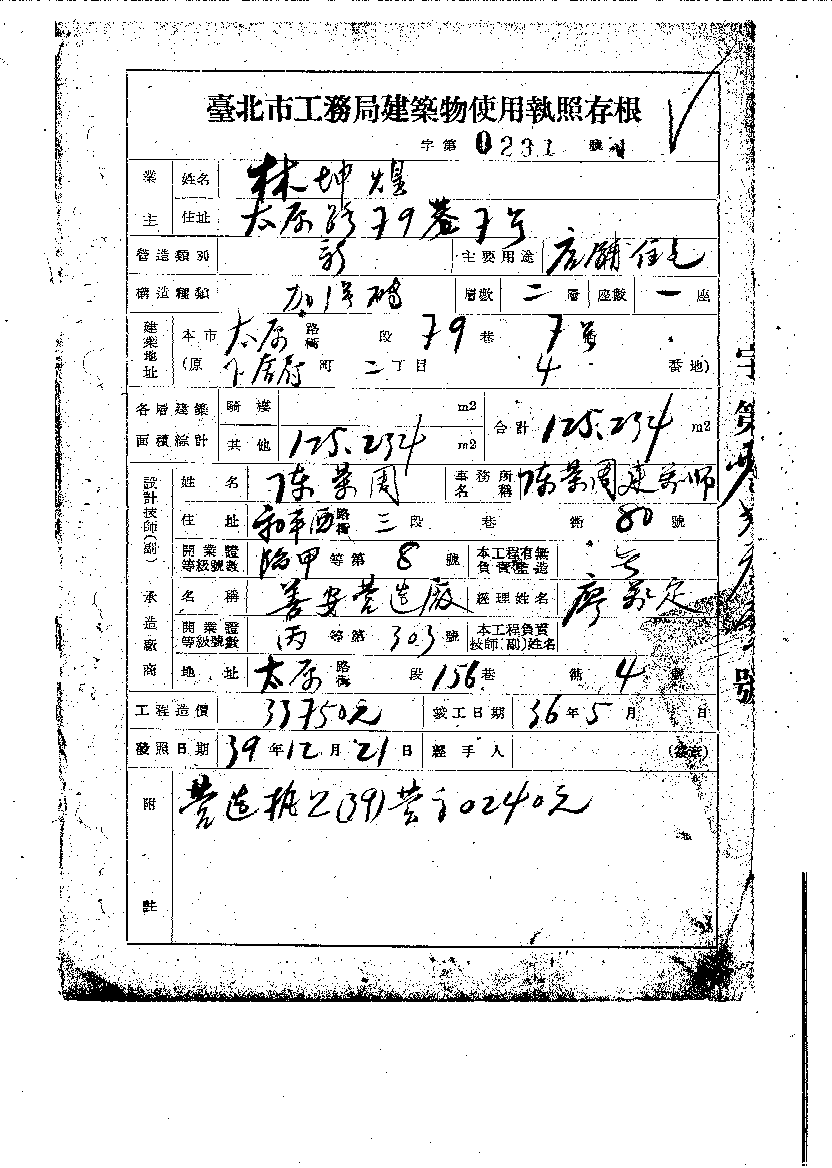 臺北市工務局建築物使用執照存根
字第 0231 號
業主 姓名 林坤煌
住址 太原路79巷7号
營造類別 新 主要用途 店舖住宅
構造種類 加強磚 層數 二 層 座數 一 座
建築地址 本市 太原 路街 段 79 巷 7 號
(原 下奎府 町 二 丁目 4 番地)
各層建築面積綜計 騎樓 m2 合計 125.234 m2
其他 125.234 m2
設計技師(副) 姓名 陈荣周 事務所名稱 陈荣周建築師
住址 和平西 路街 三 段 巷 衖 80 號
開業證等級號數 臨甲 等第 8 號 本工程有無負責監造
承造廠商 名稱 善安营造廠 經理姓名 廖 定
開業證等級號數 丙 等第 303 號 本工程負責技師(副)姓名
地址 太原 路街 段 156 巷 衖 4 號
工程造價 33750元 竣工日期 36 年 5 月 日
發照日期 39 年 12 月 21 日 經手人 (簽章)
附註 营造 (39)营字0240
字第 號